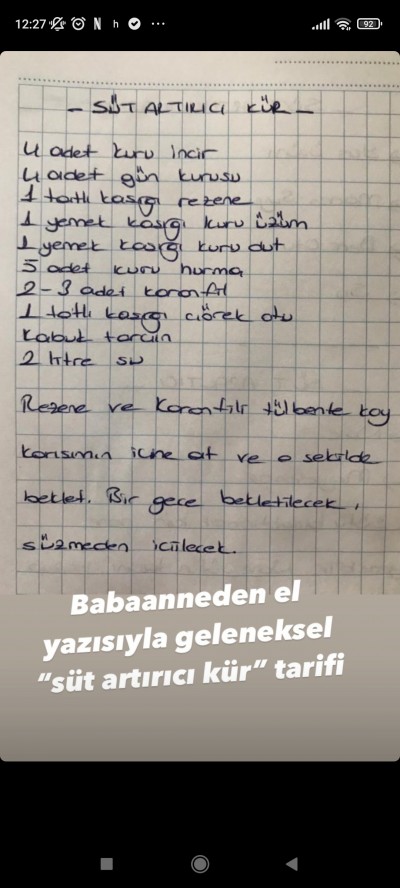 12:27 N h 92
- SÜT ARTIRICI KÜR -
4 adet kuru incir
4 adet gün kurusu
1 tatlı kaşığı rezene
1 yemek kaşığı kuru üzüm
1 yemek kaşığı kuru dut
5 adet kuru hurma
2-3 adet karanfil
1 tatlı kaşığı çörek otu
Kabuk tarçın
2 litre su
Rezene ve Karanfili tülbente koy
karışımın içine at ve o şekilde
beklet. Bir gece bekletilecek,
süzmeden içilecek.
Babaanneden el
yazısıyla geleneksel
"süt artırıcı kür" tarifi